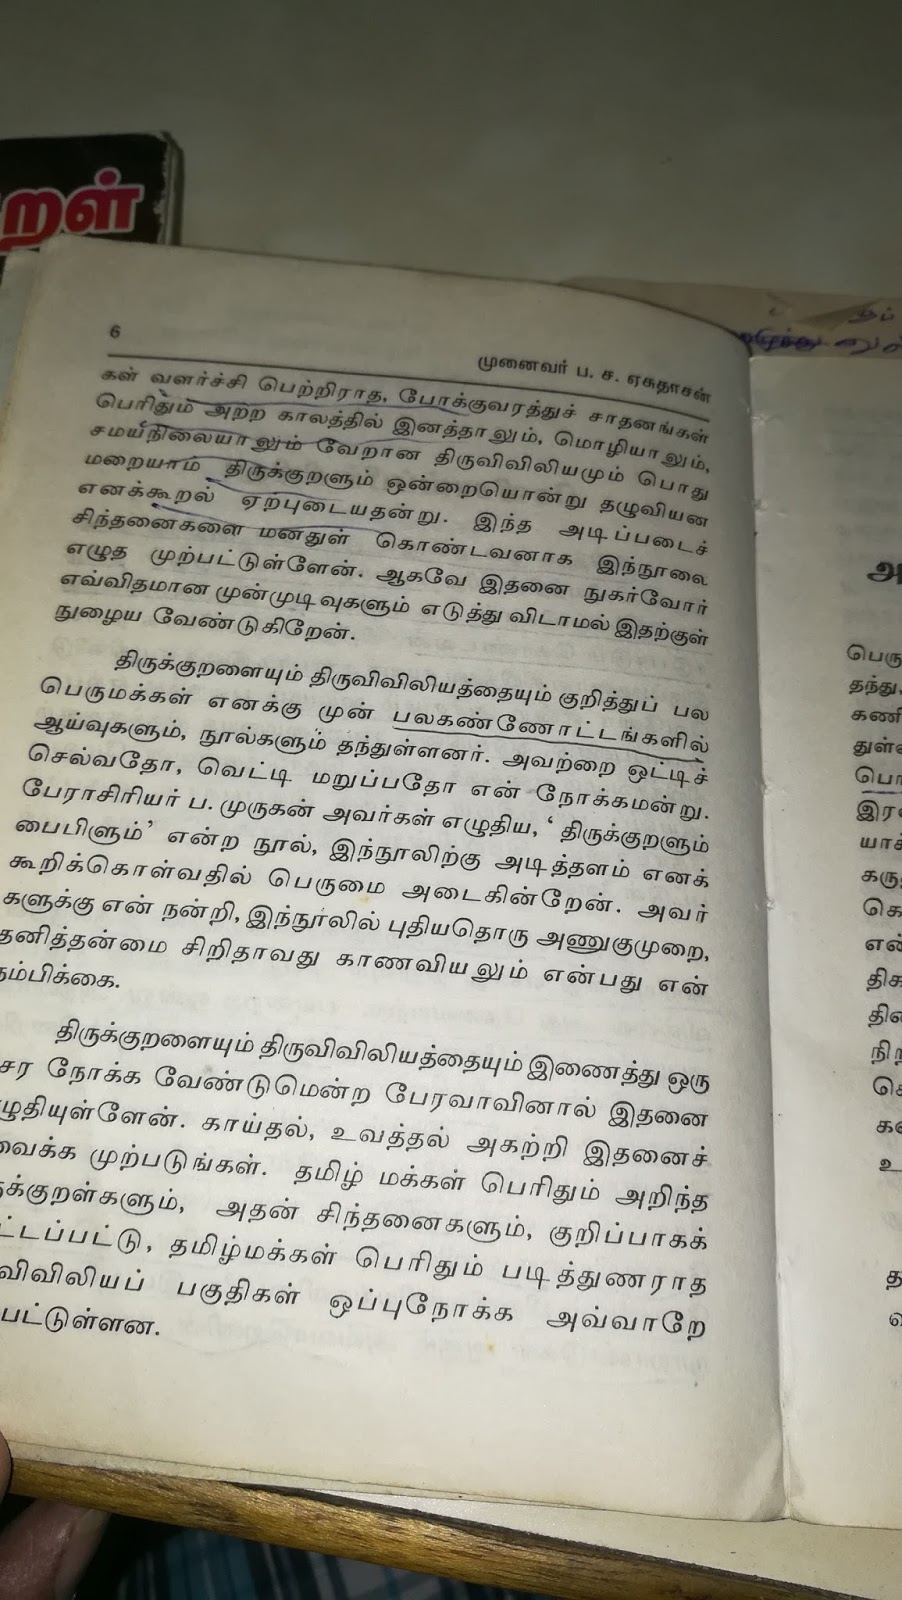 றள்
6
முனைவர் ப. ச. ஏசுதாசன்
கள் வளர்ச்சி பெற்றிராத, போக்குவரத்துச் சாதனங்கள்
பெரிதும் அற்ற காலத்தில் இனத்தாலும், மொழியாலும்,
சமயநிலையாலும் வேறான திருவிவிலியமும் பொது
மறையாம் திருக்குறளும் ஒன்றையொன்று தழுவியன
எனக்கூறல் ஏற்புடையதன்று. இந்த அடிப்படைச்
சிந்தனைகளை மனதுள் கொண்டவனாக இந்நூலை
எழுத முற்பட்டுள்ளேன். ஆகவே இதனை நுகர்வோர்
எவ்விதமான முன்முடிவுகளும் எடுத்து விடாமல் இதற்குள்
நுழைய வேண்டுகிறேன்.
திருக்குறளையும் திருவிவிலியத்தையும் குறித்துப் பல
பெருமக்கள் எனக்கு முன் பலகண்ணோட்டங்களில்
ஆய்வுகளும், நூல்களும் தந்துள்ளனர். அவற்றை ஒட்டிச்
செல்வதோ, வெட்டி மறுப்பதோ என் நோக்கமன்று.
பேராசிரியர் ப. முருகன் அவர்கள் எழுதிய, ‘ திருக்குறளும்
பைபிளும்’ என்ற நூல், இந்நூலிற்கு அடித்தளம் எனக்
கூறிக்கொள்வதில் பெருமை அடைகின்றேன். அவர்
களுக்கு என் நன்றி, இந்நூலில் புதியதொரு அணுகுமுறை,
தனித்தன்மை சிறிதாவது காணவியலும் என்பது என்
நம்பிக்கை.
திருக்குறளையும் திருவிவிலியத்தையும் இணைத்து ஒரு
சேர நோக்க வேண்டுமென்ற பேரவாவினால் இதனை
ழுதியுள்ளேன். காய்தல், உவத்தல் அகற்றி இதனைச்
வைக்க முற்படுங்கள். தமிழ் மக்கள் பெரிதும் அறிந்த
க்குறள்களும், அதன் சிந்தனைகளும், குறிப்பாகக்
ட்டப்பட்டு, தமிழ்மக்கள் பெரிதும் படித்துணராத
விவிலியப் பகுதிகள் ஒப்புநோக்க அவ்வாறே
பட்டுள்ளன.
பெரு
தந்து
கணி
துள்
பொ
யாக்
கரு
கொ
என்